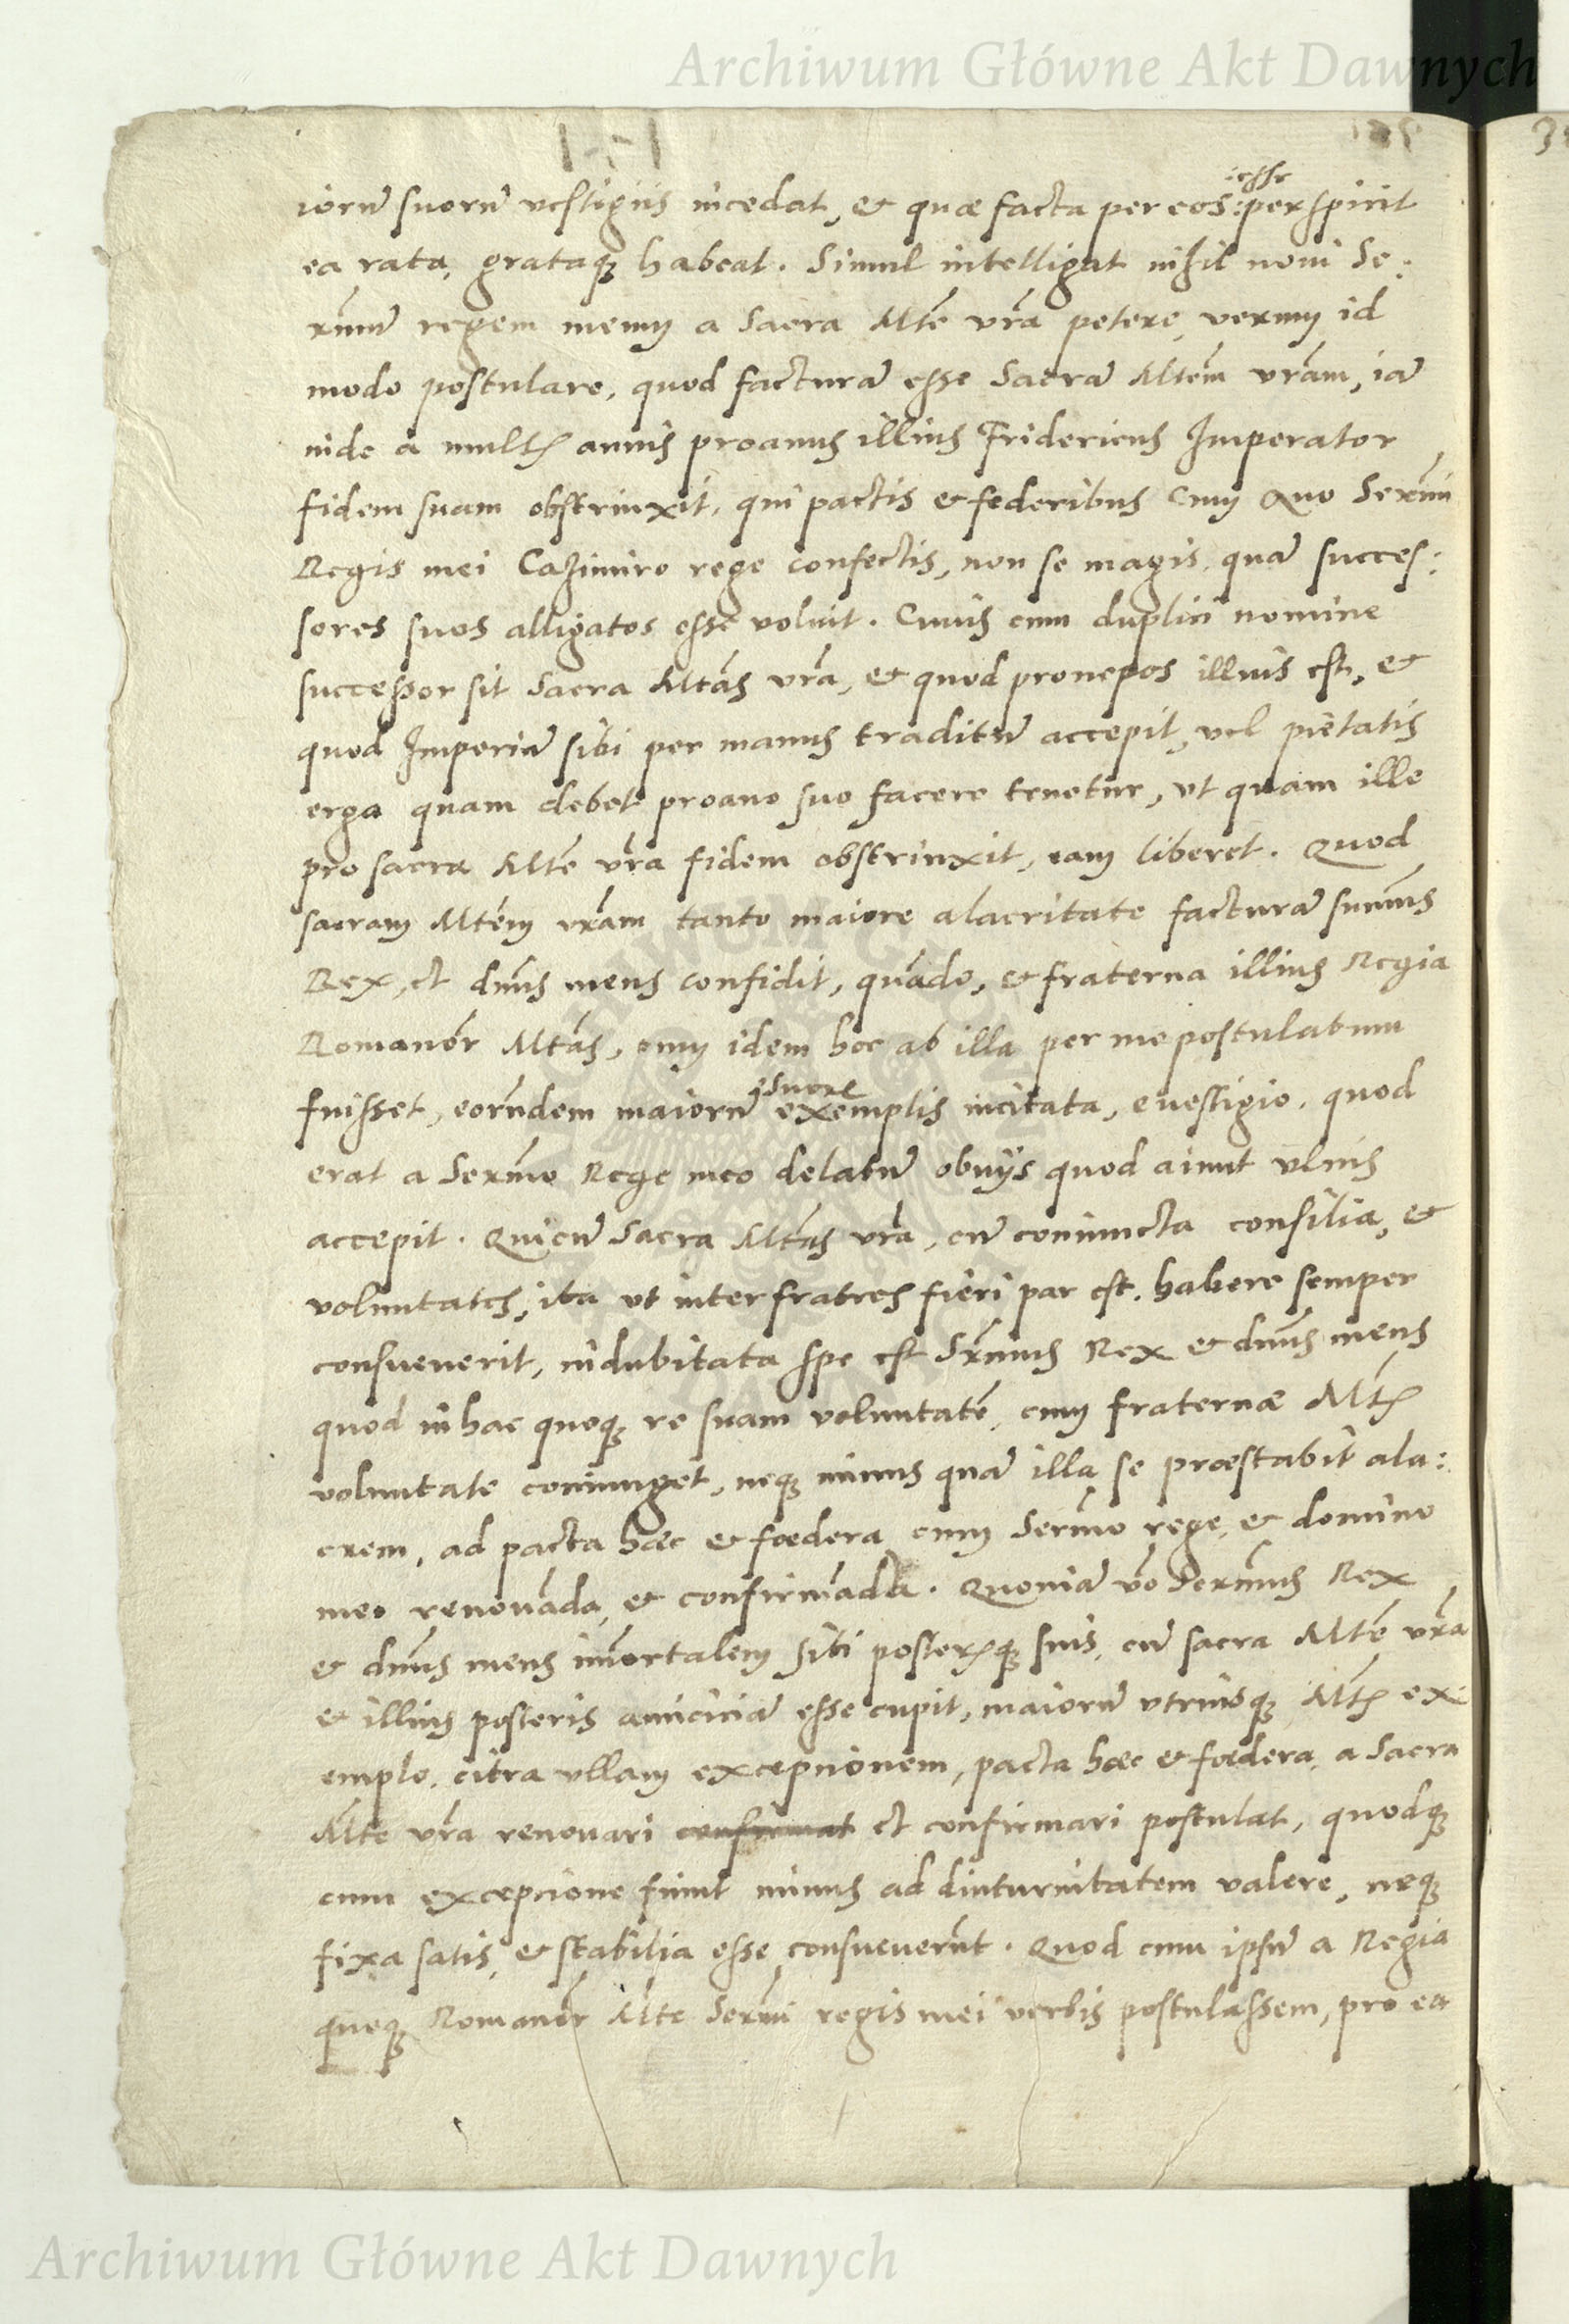 Archiwum Główne Akt Dawnych
iorũ suorũ vestigiis incedat, et quæ facta per eos :esse: perspicit
ea rata, grataqꝫ habeat. Simul intelligat nihil noui Se:
rm̃um regem meum a Sacra Mtẽ vr̃a petere, verum id
modo postulare, quod facturã esse Sacrã Mtẽm vr̃am, iã
inde a multis annis proauus illius Fridericus Imperator
fidem suam obstrinxit, qui pactis et federibus cum Auo Serm̃i
Regis mei Cazimiro rege confectis, non se magis, quã succes:
sores suos alligatos esse voluit. Cuius cum duplici nomine
successor sit Sacra Mtãs vr̃a, et quod pronepos illius est, et
quod Imperiũ sibi per manus traditũ accepit, vel pietatis
erga quam debet proauo suo facere tenetur, vt quam ille
pro sacra Mtẽ vr̃a fidem obstrinxit, eam liberet. Quod
sacram Mtẽm vr̃am tanto maiore alacritate facturã sm̃us
Rex, et dñus meus confidit, quãdo, et fraterna illius Regia
Romanor̃ Mtãs, cum idem hoc ab illa per me postulatum
fuisset, eorũdem maiorũ :suorũ exemplis incitata, e uestigio, quod
erat a Serm̃o Rege meo delatũ obuijs quod aiunt vlnis
accepit. Quicũ Sacra Mtãs vr̃a, cũ coniuncta consilia, et
voluntates, ita vt inter fratres fieri par est, habere semper
consueuerit, indubitata spe est Srm̃us Rex et dñus meus
quod in hac quoqꝫ re suam voluntatẽ, cum fraternæ Mtis
voluntate coniunget, neqꝫ minus quã illa se præstabit ala:
crem, ad pacta hæc et fœdera cum Serm̃o rege, et domino
meo renouãda, et confirmãda. Quoniã vẽo Serm̃us Rex
et dñus meus im̃ortalem sibi posterisqꝫ suis, cũ sacra Mtẽ vr̃a
et illius posteris amiciciã esse cupit, maiorũ vtriusqꝫ Mtis ex
emplo, citra vllam excepcionem, pacta hæc et fœdera, a Sacra
Mtẽ vr̃a renouari confirmat et confirmari postulat, quodqꝫ
cum excepcione fiunt minus ad diuturnitatem valere, neqꝫ
fixa satis, et stabilia esse consueuerũt. Quod cum ipsũ a Regia
quoqꝫ Romanor̃ Mtẽ Serm̃i regis mei verbis postulassem, pro ea
Archiwum Główne Akt Dawnych